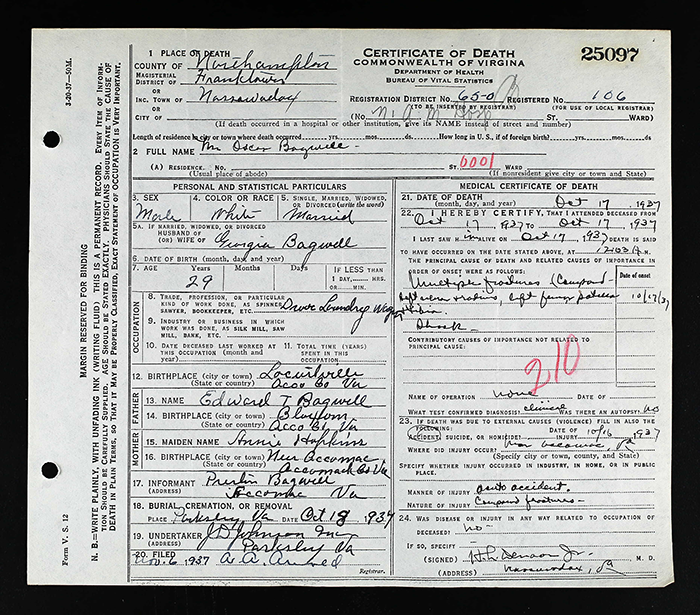 3-20-37—50M.
MARGIN RESERVED FOR BINDING
N. B.—WRITE PLAINLY, WITH UNFADING INK (WRITING FLUID) THIS IS A PERMANENT RECORD. Every Item of Information Should be Carefully Supplied. AGE Should be Stated EXACTLY. PHYSICIANS Should State the CAUSE OF DEATH in Plain Terms, so That it May be Properly Classified, Exact Statement of OCCUPATION is Very Important.
Form V. S. 12
1 PLACE OF DEATH
COUNTY OF Northampton
MAGISTERIAL DISTRICT OF Franktown
OR
INC. TOWN OF Nassawadox
OR
CITY OF
CERTIFICATE OF DEATH
COMMONWEALTH OF VIRGINIA
DEPARTMENT OF HEALTH
BUREAU OF VITAL STATISTICS
25097
REGISTRATION DISTRICT NO. 65-0 REGISTERED NO. 106
(TO BE INSERTED BY REGISTRAR) (FOR USE OF LOCAL REGISTRAR)
(No. N. A. M. Hosp ST. WARD)
(If death occurred in a hospital or other institution, give its NAME instead of street and number)
Length of residence in city or town where death occurred yrs. mos. ds. How long in U. S., if of foreign birth? yrs. mos. ds
2 FULL NAME Mr Oscar Bagwell
(A) RESIDENCE. No. ST. 0001 WARD
(Usual place of abode) (If nonresident give city or town and State)
PERSONAL AND STATISTICAL PARTICULARS
3. SEX Male
4. COLOR OR RACE White
5. SINGLE, MARRIED, WIDOWED, OR DIVORCED (write the word) Married
5A. IF MARRIED, WIDOWED, OR DIVORCED
HUSBAND OF
(OR) WIFE OF Georgia Bagwell
6. DATE OF BIRTH (month, day, and year)
7. AGE Years 29 Months Days IF LESS than 1 DAY, HRS. OR MIN.
OCCUPATION
8. TRADE, PROFESSION, OR PARTICULAR KIND OF WORK DONE, AS SPINNER, SAWYER, BOOKKEEPER, ETC. Drove Laundry Wagon
9. INDUSTRY OR BUSINESS IN WHICH WORK WAS DONE, AS SILK MILL, SAW MILL, BANK, ETC.
10. DATE DECEASED LAST WORKED AT THIS OCCUPATION (month and year)
11. TOTAL TIME (YEARS) SPENT IN THIS OCCUPATION
12. BIRTHPLACE (city or town) Locustville
(State or country) Acco Co Va
FATHER
13. NAME Edward T Bagwell
14. BIRTHPLACE (city or town) Bloxom
(State or country) Acco Co. Va
MOTHER
15. MAIDEN NAME Annie Hopkins
16. BIRTHPLACE (city or town) Near Accomac
(State or country) Accomack Co Va
17 INFORMANT Bagwell
(ADDRESS) Accomac Va
18 BURIAL, CREMATION, OR REMOVAL
PLACE Parksley Va DATE Oct 18, 1937
19 UNDERTAKER J D Johnson Inc
(ADDRESS) Parksley Va
20. FILED Nov. 6, 1937
Registrar.
MEDICAL CERTIFICATE OF DEATH
21. DATE OF DEATH (month, day, and year) Oct 17, 1937
22. I HEREBY CERTIFY, THAT I ATTENDED DECEASED FROM
Oct 17, 1937 TO Oct 17, 1937
I LAST SAW HIM ALIVE ON Oct 17, 1937 DEATH IS SAID
TO HAVE OCCURRED ON THE DATE STATED ABOVE, AT 12:03 A.M.
THE PRINCIPAL CAUSE OF DEATH AND RELATED CAUSES OF IMPORTANCE IN ORDER OF ONSET WERE AS FOLLOWS:
Date of onset
Multiple fractures (Compound
left femur patella 10/17/37
Shock
CONTRIBUTORY CAUSES OF IMPORTANCE NOT RELATED TO PRINCIPAL CAUSE:
210
NAME OF OPERATION none DATE OF
WHAT TEST CONFIRMED DIAGNOSIS? clinical WAS THERE AN AUTOPSY? No
23. IF DEATH WAS DUE TO EXTERNAL CAUSES (VIOLENCE) FILL IN ALSO THE FOLLOWING:
ACCIDENT, SUICIDE, OR HOMICIDE? DATE OF INJURY 10/16 1937
WHERE DID INJURY OCCUR?
(Specify city or town, county, and State)
SPECIFY WHETHER INJURY OCCURRED IN INDUSTRY, IN HOME, OR IN PUBLIC PLACE.
MANNER OF INJURY auto accident.
NATURE OF INJURY Compound fractures
24. WAS DISEASE OR INJURY IN ANY WAY RELATED TO OCCUPATION OF DECEASED? no
IF SO, SPECIFY
(SIGNED) Jr. M. D.
(ADDRESS) Nassawadox, Va